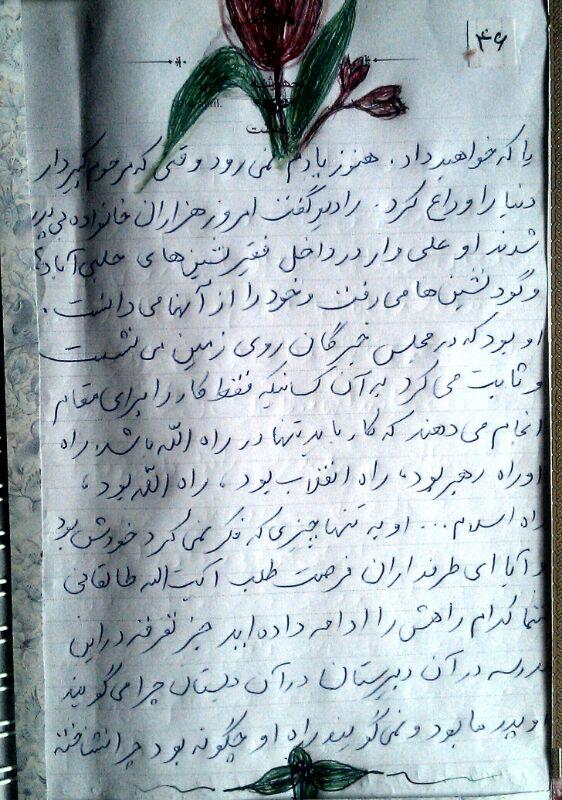 ۴۶
را که خواهید داد. هنوز یادم نمی رود وقتی که مرحوم پدر دار
دنیا را وداع کرد. رادیو گفت امروز هزاران خانواده بی پدر
شدند او علی وار در داخل فقیر نشین های حلبی آباد
و گود نشین ها می رفت و خود را از آنها می دانست.
او بود که در مجلس خبرگان روی زمین می نشست
و ثابت می کرد به آن کسانیکه فقط کار را برای مقام
انجام می دهند که کار باید تنها در راه الله باشد. راه
او راه رهبر بود، راه انقلاب بود، راه الله بود،
راه اسلام ... او به تنها چیزی که فکر نمی کرد خودش بود
و آیا ای طرفداران فرصت طلب آیت الله طالقانی
شما کدام راهش را ادامه داده اید جز تفرقه در این
مدرسه در آن دبیرستان در آن دبستان چرا می گویند
او پدر ما بود و نمی گویند راه او چگونه بود چرا نشناخته